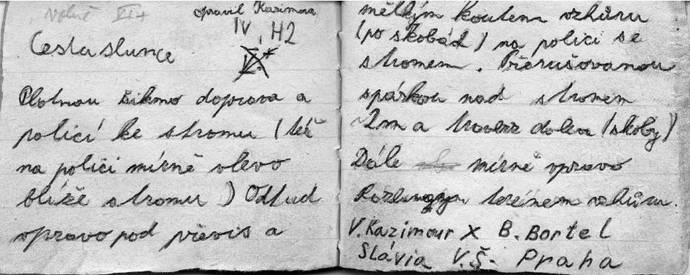 volně VI+
opravil Kazimour
IV, H2
V.
Cesta slunce
Plotnou šikmo doprava a
policí ke stromu (též
na polici mírně vlevo
blíže stromu) Odtud
vpravo pod převis a
mělkým koutem vzhůru
(po skobách) na polici se
stromem. Přerušovanou
spárkou nad stromem
2m a travers doleva (skoby)
Dále mírně vpravo
terénem vzhůru.
V. Kazimour X B. Bortel
Slávia V.Š. Praha